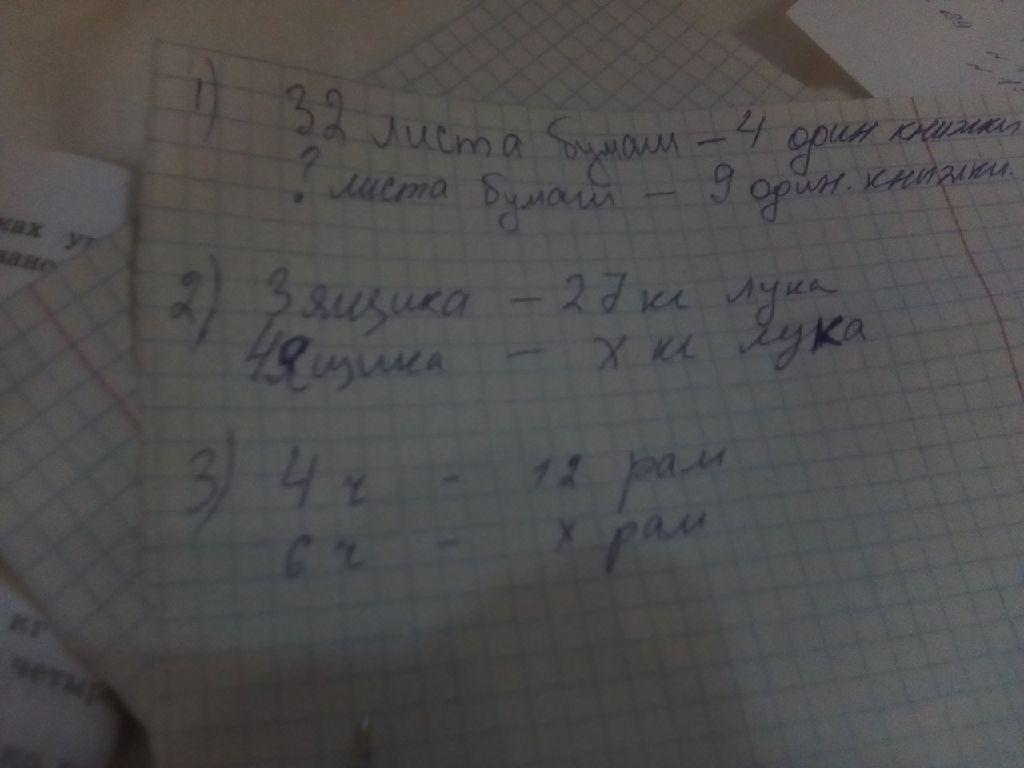 1) 32 листа бумаги – 4 один книжки
? листа бумаги – 9 один. книжки.
2) 3 ящика – 27 кг лука
4 ящика – х кг лука
3) 4 ч - 12 рам
6 ч - х рам
ках
вано
кг
четыр